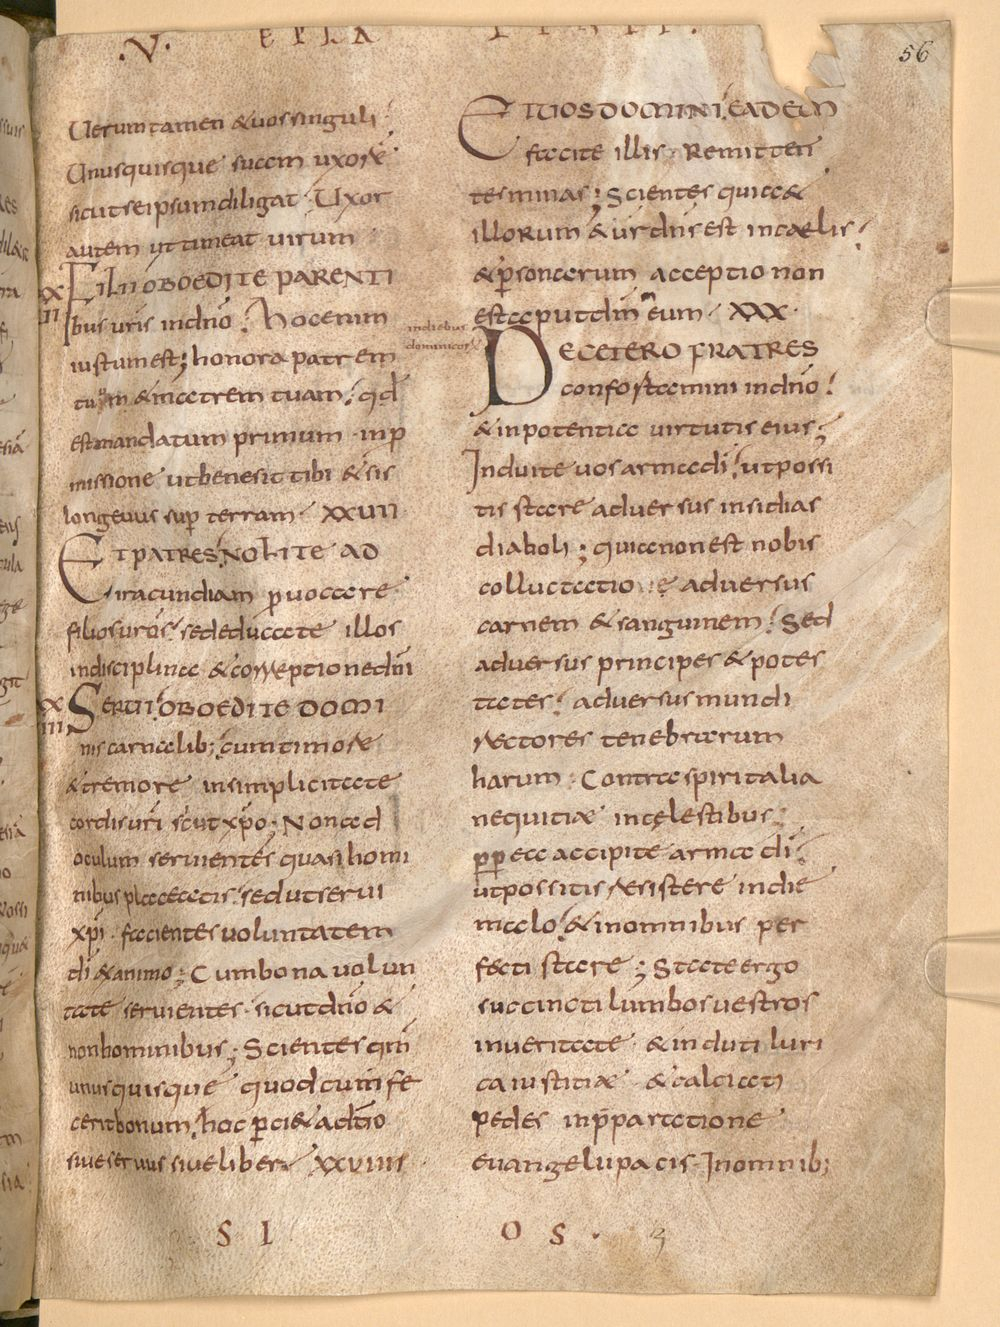 56
Uerum tamen & uos singuli
Unusquisque suam uxorē
sicut seipsum diligat Uxor
autem ut timeat uirum
FILII OBOEDITE PARENTI
bus uris in dnō Hoc enim
iustum est; honora patrem
tuum & matrem tuam qd
est mandatum primum in p
missione ut bene sit tibi & sis
longeuus sup terram XXVII
ET PATRES NOLITE AD
iracundiam puocare
filios uros sed educate illos
in disciplina & correptione dni
SERUI OBOEDITE DOMI
nis carnalib; cum timore
& tremore in simplicitate
cordis uri sicut xpo; Non ad
oculum seruientes quasi homi
nibus placentes sed ut serui
xpi facientes uoluntatem
di ex animo; Cum bona uolun
tate seruientes sicut dnō &
non hominibus; Scientes qm
unusquisque quodcumq fe
cerit bonum hoc pcipiet a dno
siue seruus siue liber XXVIIII
ET UOS DOMINI EADEM
facite illis Remitten
tes minas; Scientes quia &
illorum & ur dns est in caelis
& personarum acceptio non
est aput dm eum XXX
in diebus
dominicor
DE CETERO FRATRES
confortamini in dnō
& in potentia uirtutis eius;
Induite uos arma di ut possi
tis stare aduersus insidias
diaboli; quia non est nobis
colluctatio aduersus
carnem & sanguinem Sed
aduersus principes & potes
tates aduersus mundi
rectores tenebrarum
harum Contra spiritalia
nequitiae in celestibus;
pp ea accipite arma di
ut possitis resistere in die
malo & in omnibus per
fecti stare; State ergo
succincti lumbos uestros
in ueritate & induti luri
ca iustitiae & calciati
pedes in pparatione
euangelii pacis In omnib;
SI OS